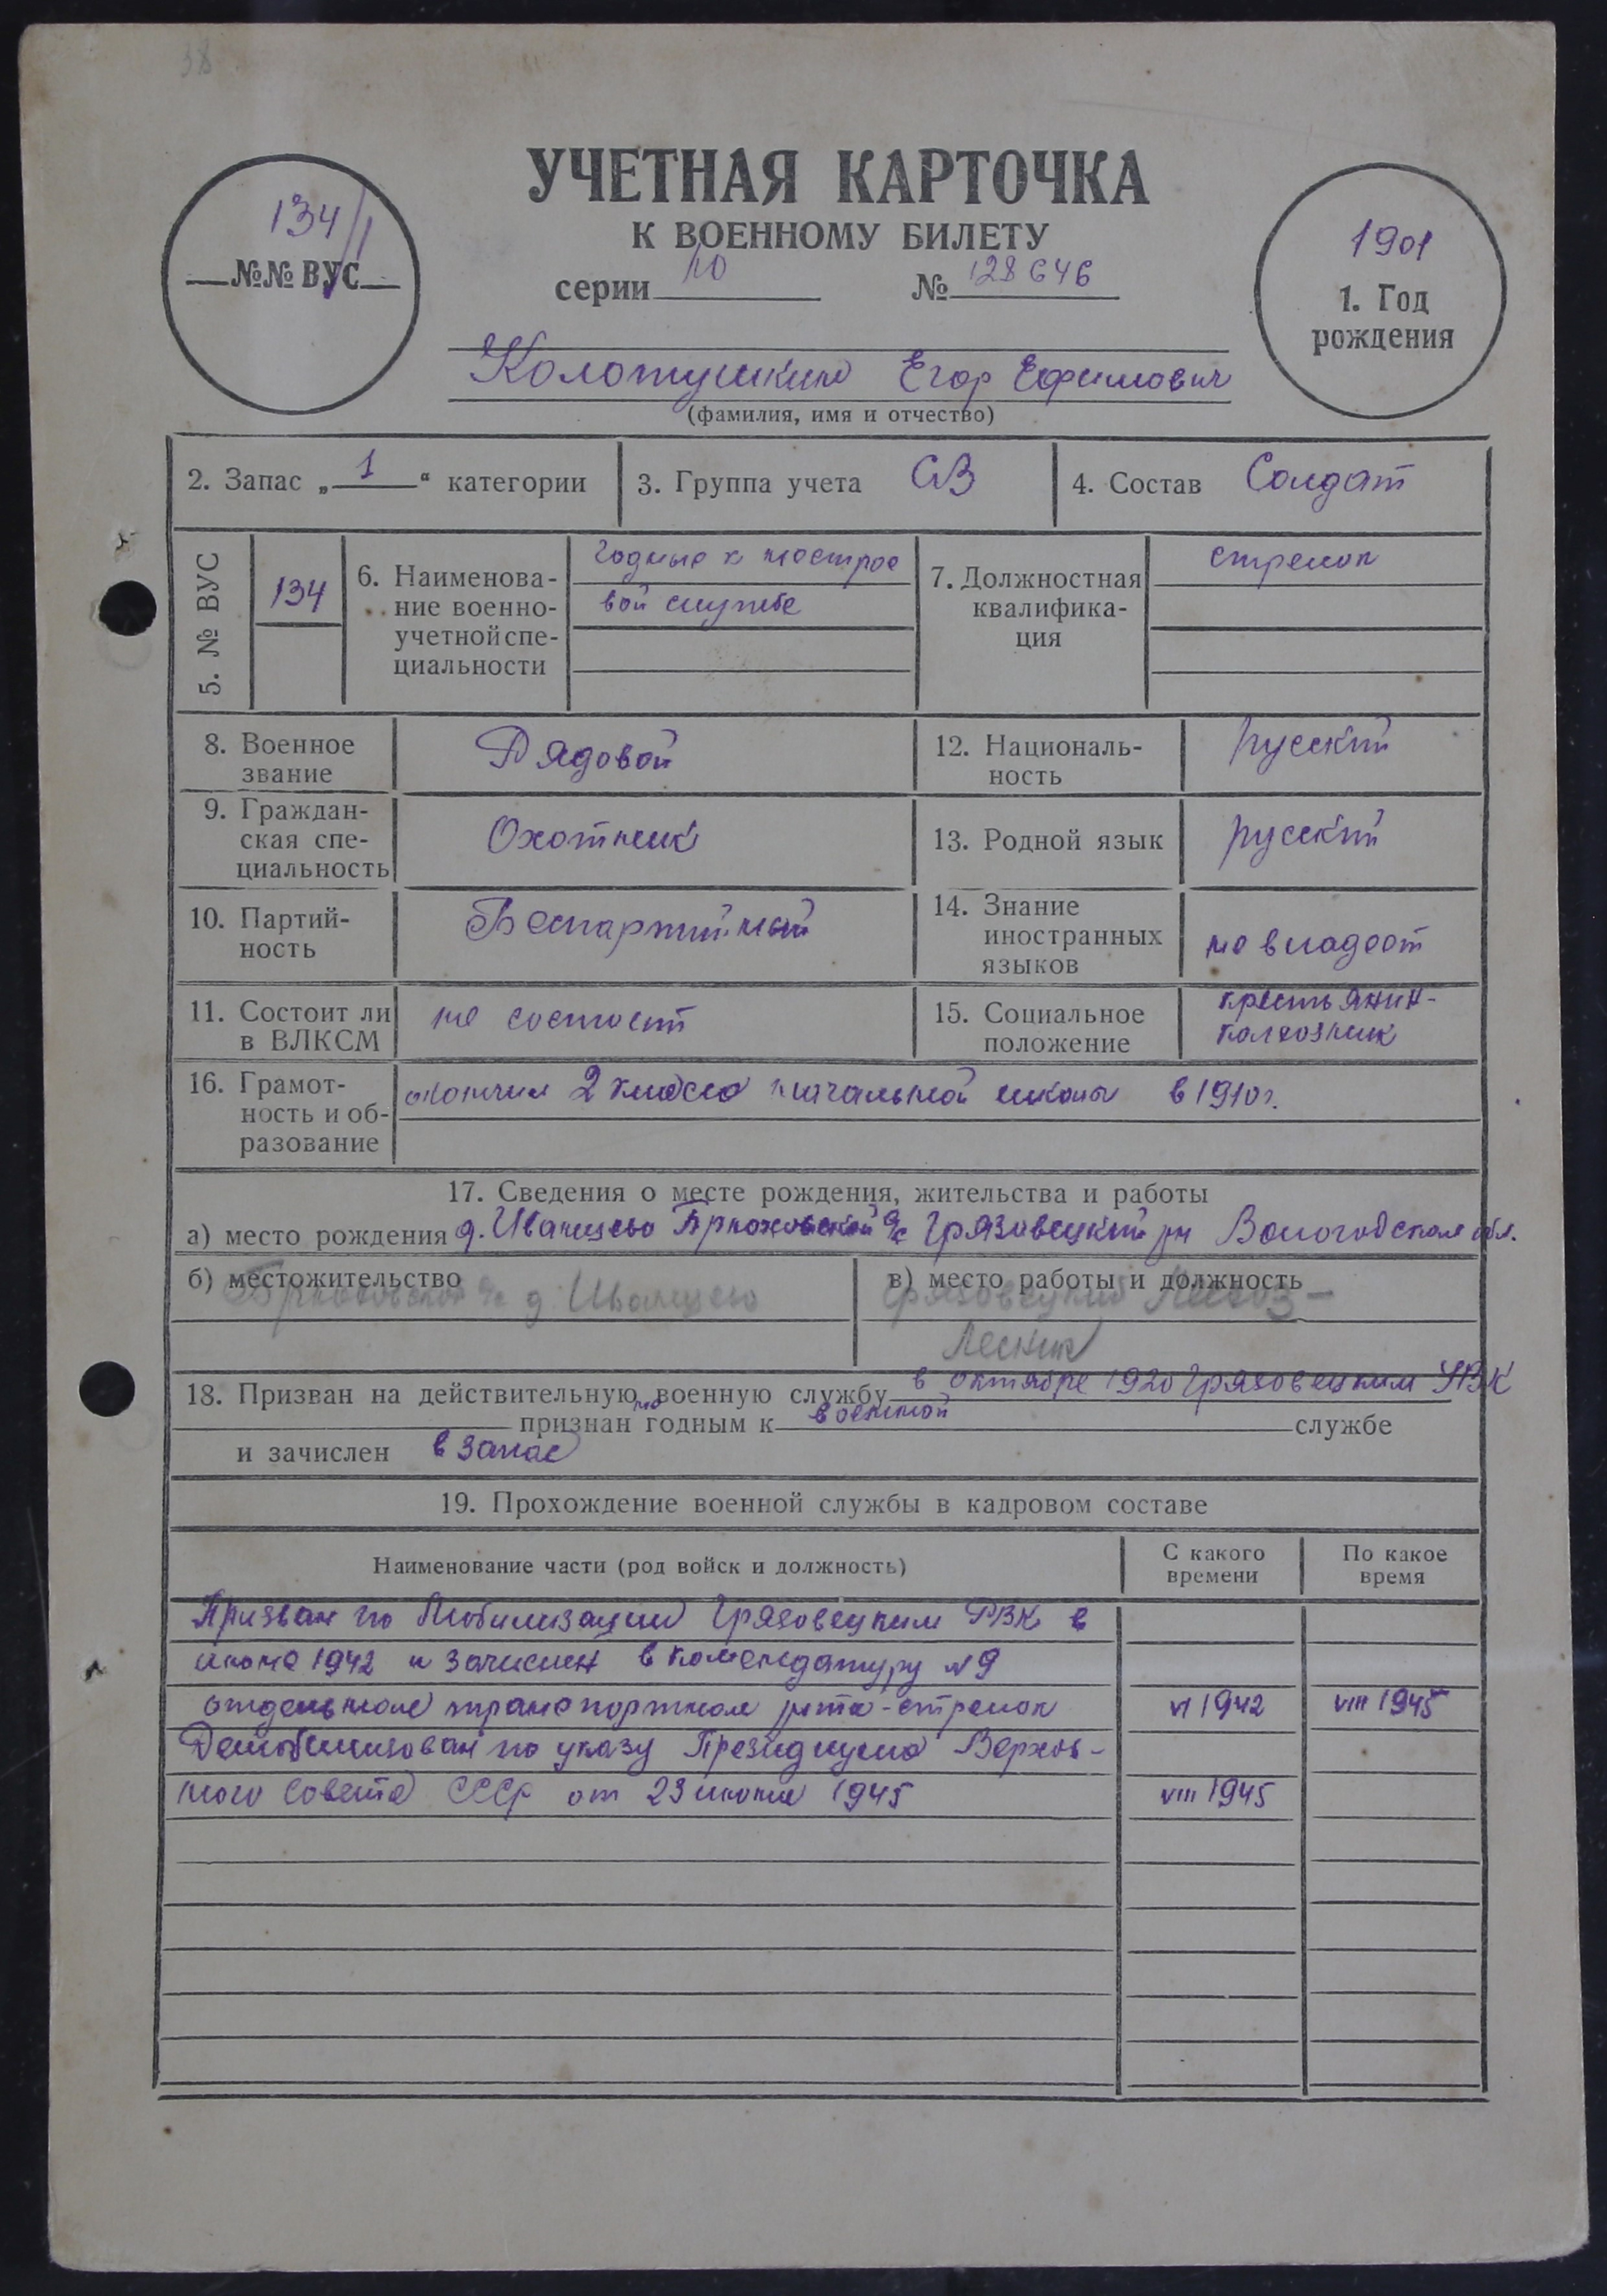 38
УЧЕТНАЯ КАРТОЧКА
К ВОЕННОМУ БИЛЕТУ
серии № 128646
134/1
№№ ВУС
1901
1. Год
рождения
Колотушкин Егор Ефимович
(фамилия, имя и отчество)
2. Запас „ 1 “ категории
3. Группа учета СВ
4. Состав Солдат
5. № ВУС
134
6. Наименова-
ние военно-
учетной спе-
циальности
годные к нестрое
вой службе
7. Должностная
квалифика-
ция
стрелок
8. Военное
звание
Рядовой
12. Националь-
ность
русский
9. Граждан-
ская спе-
циальность
Охотник
13. Родной язык
русский
10. Партий-
ность
Беспартийный
14. Знание
иностранных
языков
не владеет
11. Состоит ли
в ВЛКСМ
не состоит
15. Социальное
положение
крестьянин-
колхозник
16. Грамот-
ность и об-
разование
окончил 2 класса начальной школы в 1910 г.
17. Сведения о месте рождения, жительства и работы
а) место рождения д. Иванцево с/с Грязовецкий рн Вологодская обл.
б) местожительство
с/с д. Иванцево
в) место работы и должность
Грязовецкий Лесхоз –
Лесник
18. Призван на действительную военную службу в октябре 1920 Грязовецким УВК
признан не годным к военной службе
и зачислен в запас
19. Прохождение военной службы в кадровом составе
Наименование части (род войск и должность)
С какого
времени
По какое
время
Призван по Мобилизации Грязовецким РВК в
июне 1942 и зачислен в комендатуру № 9
отдельная транспортная рота - стрелок VI 1942 VIII 1945
Демобилизован по указу Президиума Верхов-
ного Совета СССР от 23 июня 1945 VIII 1945